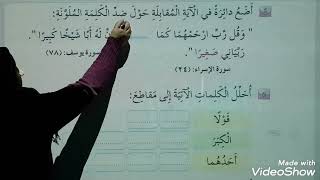 أَضَعُ دائِرَةً في الآيَةِ الْمُقابِلَةِ حَوْلَ ضِدِّ الْكَلِمَةِ الْمُلَوَّنَةِ:
" وَقُل رَّبِّ ارْحَمْهُمَا كَمَا
نَّ لَهُ أَبًا شَيْخًا كَبِيرًا ".
رَبَّيَانِي صَغِيرًا ".
سورة يوسف: (٧٨)
سورة الإسراء: (٢٤)
أُحَلِّلُ الْكَلِماتِ الْآتِيَةَ إِلى مَقاطِعَ:
قَوْلًا
الْكِبَرَ
أَحَدُهُما
Made with
VideoShow